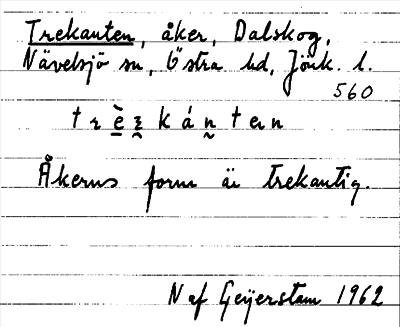 Trekanten, åker, Dalskog,
Nävelsjö sn, Östra hd, Jönk. l.
560
Åkerns form är trekantig.
N af Geijerstam 1962